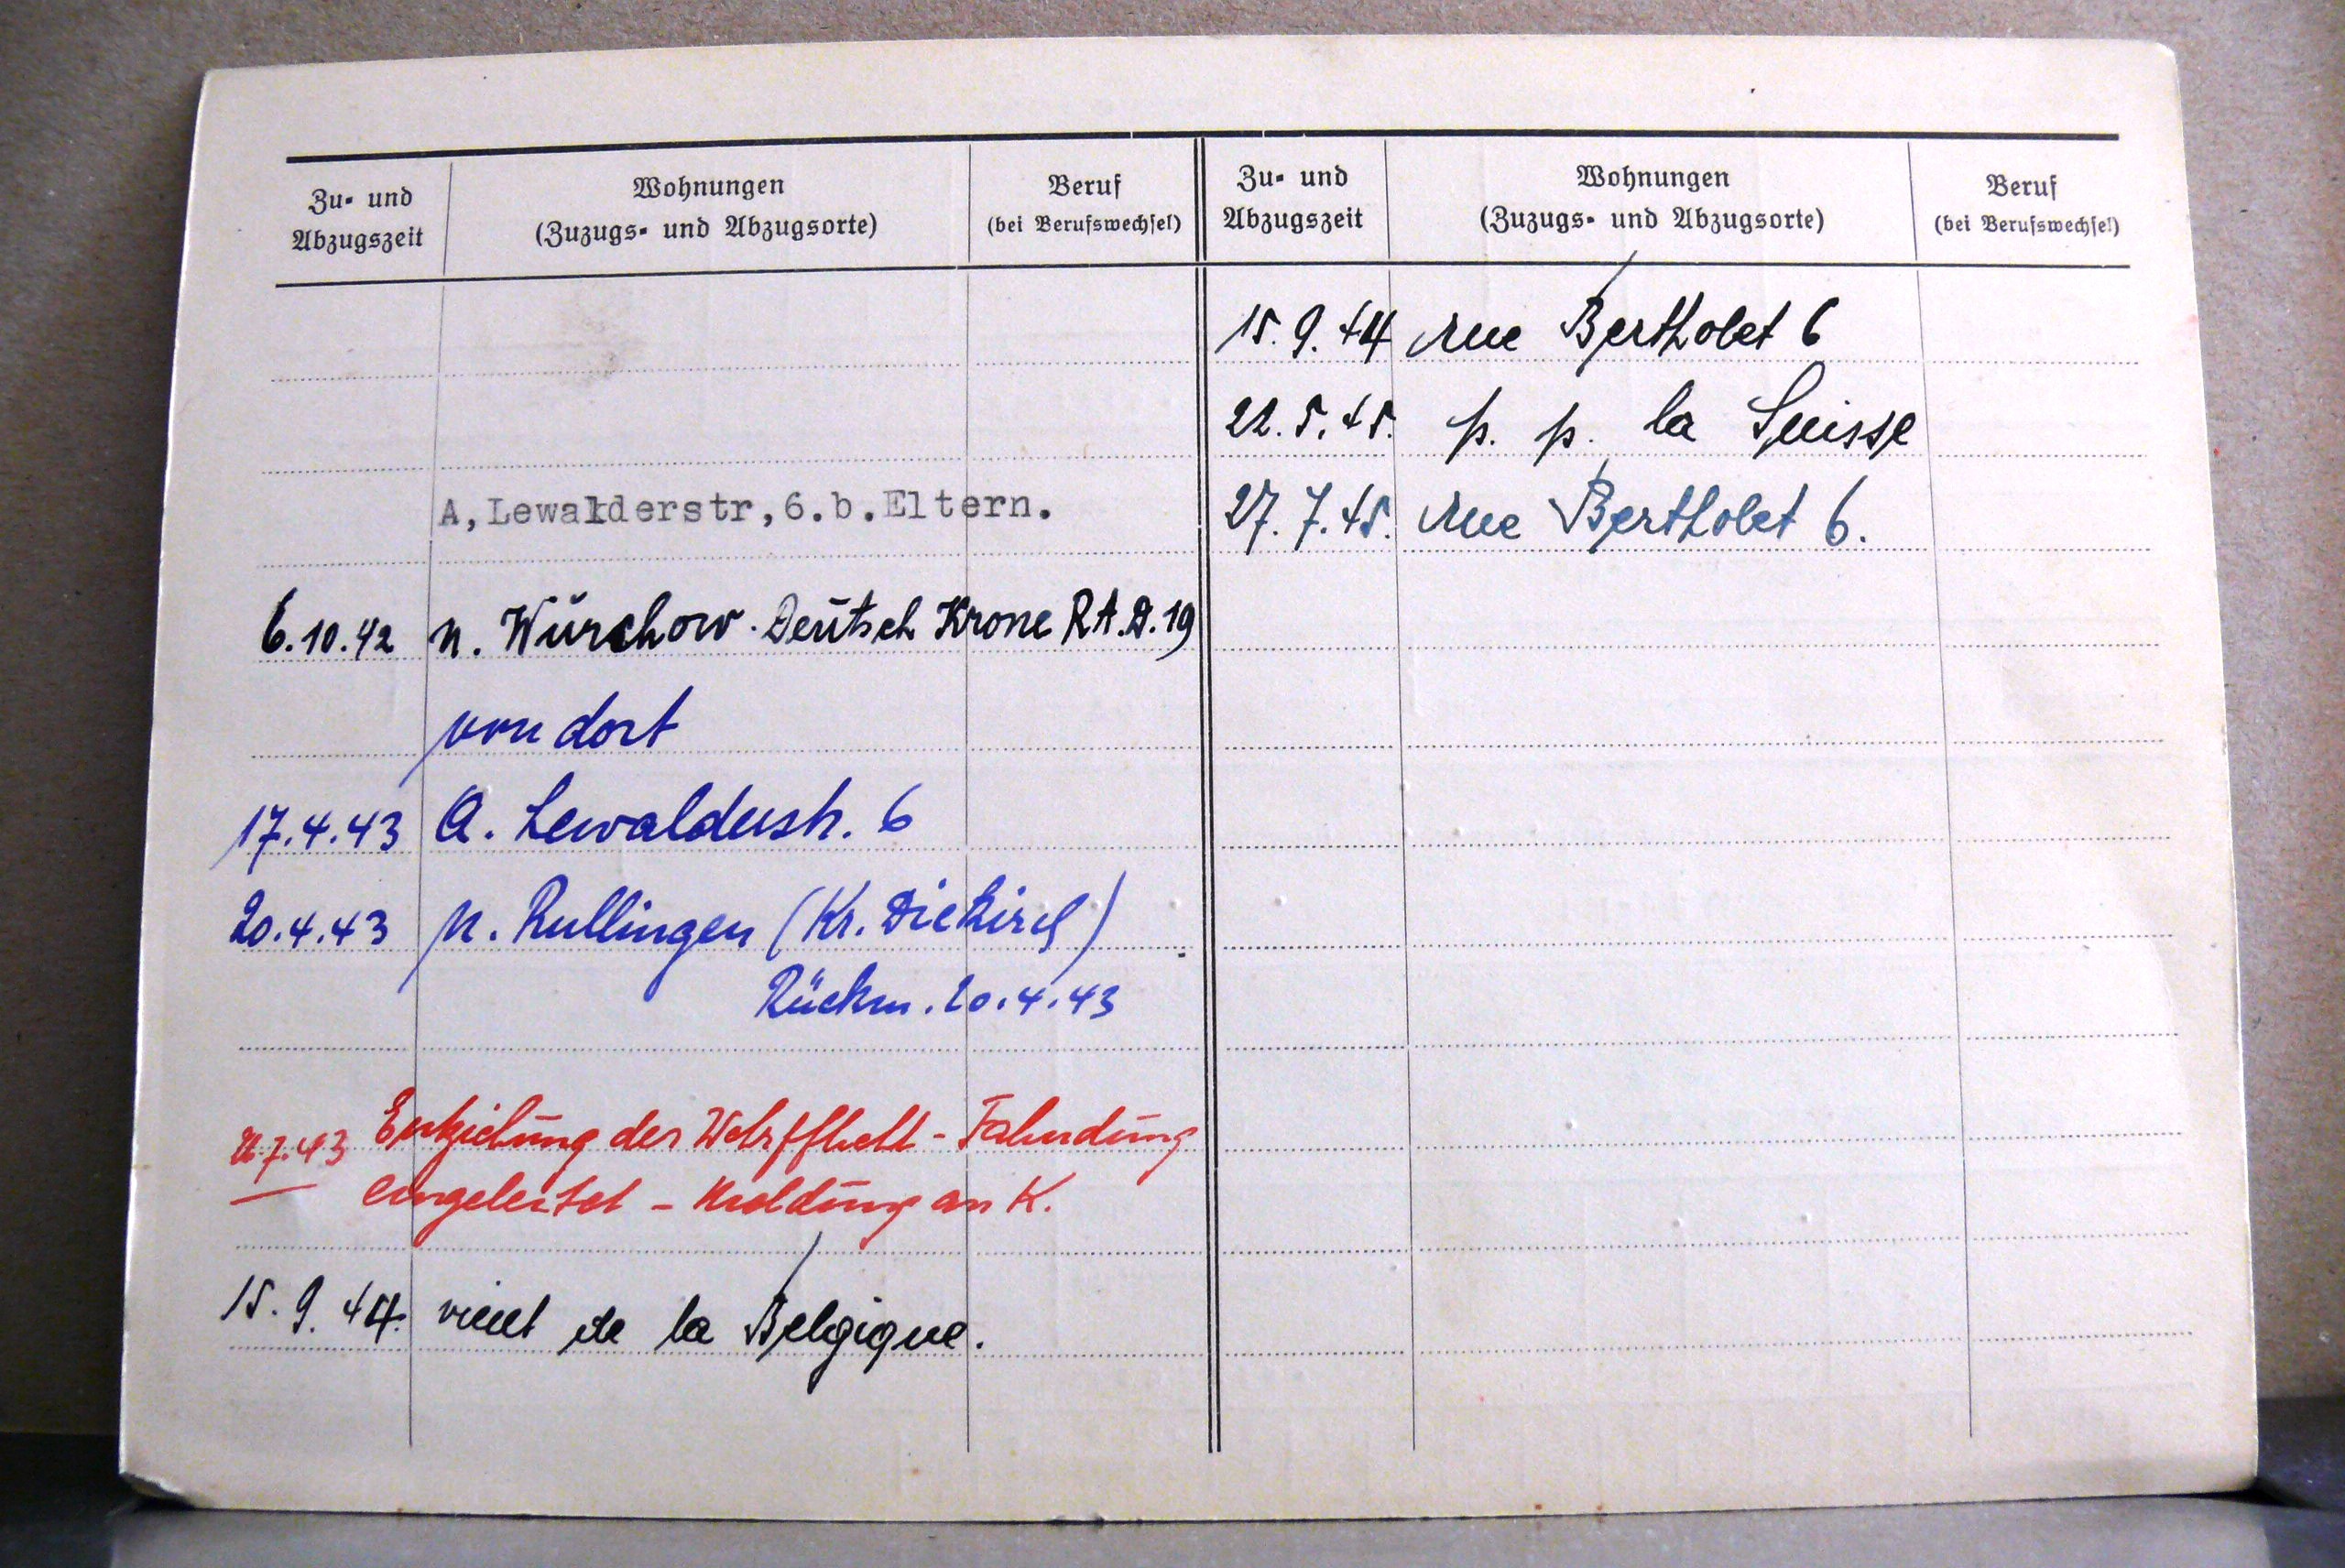 Zu- und
Abzugszeit
Wohnungen
(Zuzugs- und Abzugsorte)
Beruf
(bei Berufswechsel)
A,Lewalderstr,6.b.Eltern.
6.10.42 n. Würchow. Deutsch Krone R.A.D.19
von dort
17.4.43 A. Lewalderstr. 6
20.4.43 n. Rullingen (Kr. Diekirch)
Rückm. 20.4.43
7.43 Entziehung der Wehrpflicht - Fahndung
eingeleitet - Meldung an K.
15.9.44. vient de la Belgique.
Zu- und
Abzugszeit
Wohnungen
(Zuzugs- und Abzugsorte)
Beruf
(bei Berufswechsel)
15.9.44 rue Bertholet 6
22.5.45. p. p. la Suisse
27.7.45. rue Bertholet 6.